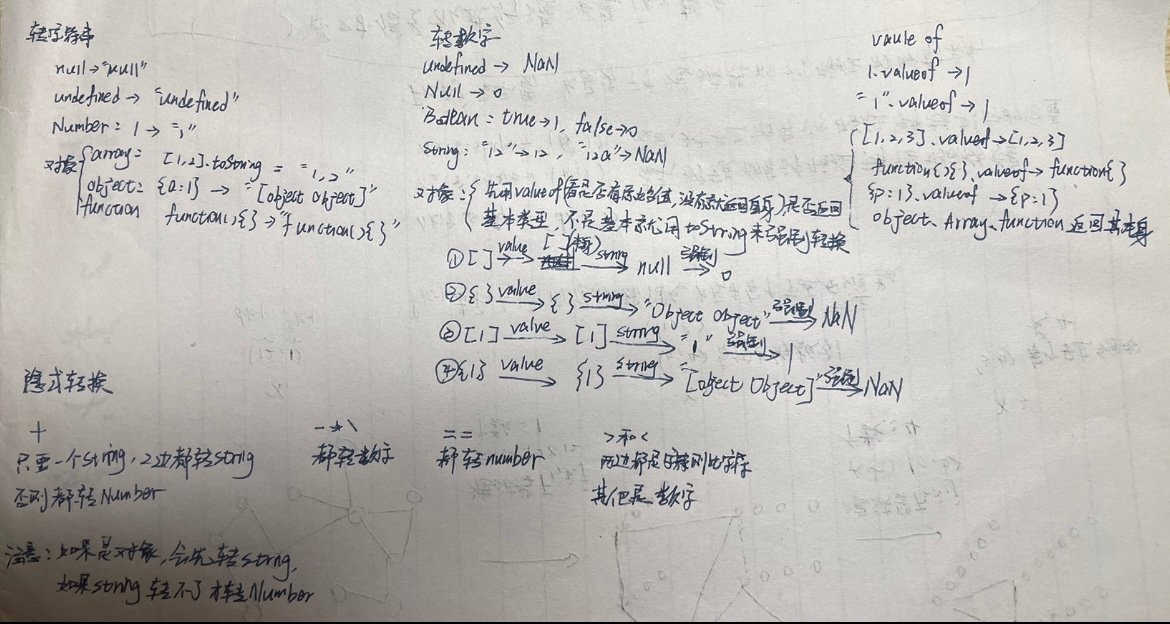 转字符串
null→"null"
undefined→"undefined"
Number: 1→"1"
对象
array: [1,2].toString = "1,2"
object: {a:1}→"[object object]"
function function(){}→"function(){}"
转数字
undefined→NaN
Null→0
Boolean: true→1, false→0
string: "12"→12, "12a"→NaN
对象: 先用valueof(看是否有原始值,没有就返回自身)是否返回
基本类型,不是基本就用toString来强制转换
①[] value→ [] string→ null 强制→ 0
②{} value→ {} string→ "Object Object" 强制→ NaN
③[1] value→ [1] string→ "1" 强制→ 1
④{1} value→ {1} string→ "[object Object]" 强制→ NaN
vaule of
1.valueof→1
"1".valueof→1
[1,2,3].valueof→[1,2,3]
function(){}.valueof→function{}
{p:1}.valueof→{p:1}
object、Array、function返回其本身
隐式转换
+
只要一个string,2边都转string
否则都转Number
- * \
都转数字
==
都转number
>和<
两边都是字符则比字符
其他是数字
注意:如果是对象,会先转strng,
如果string转不了才转Number